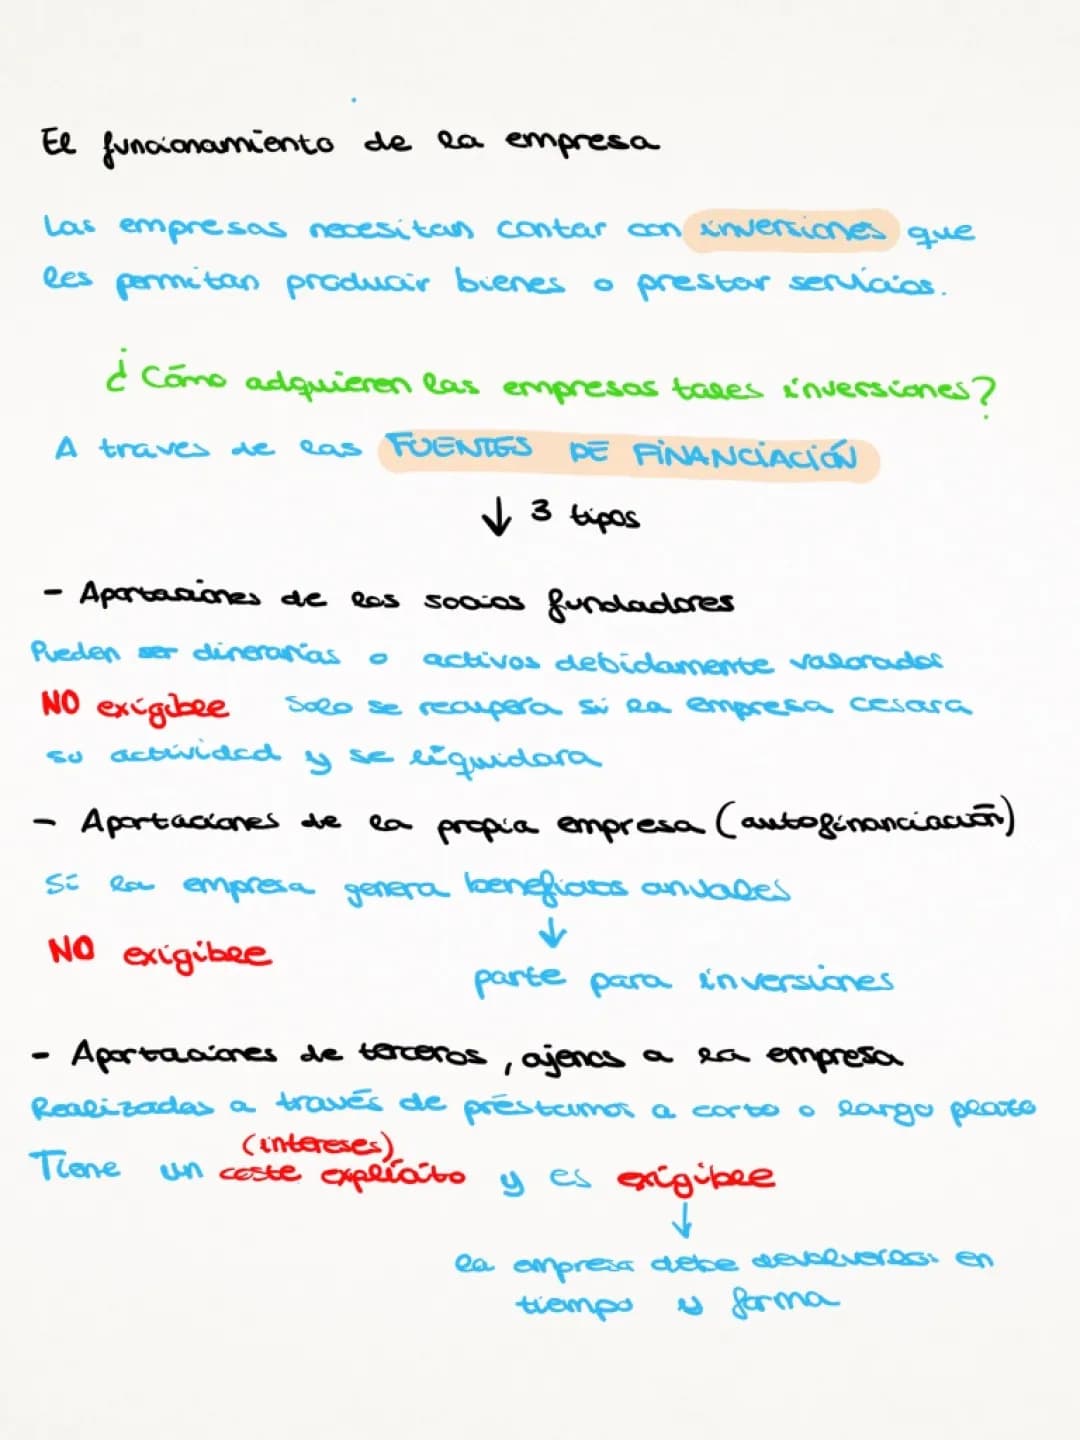 El funcionamiento de la empresa
Las empresas necesitan contar con inversiones que
les permitan producir bienes o prestar servicios.
¿Cómo adquieren las empresas tales inversiones?
A traves de las FUENTES DE FINANCIACIÓN
↓ 3 tipos
- Aportaciones de los socios fundadores
Pueden ser dinerarias o activos debidamente valorados
NO exigible Solo se recupera si la empresa cesara
su actividad y se liquidara
- Aportaciones de la propia empresa (autofinanciación)
Si la empresa genera beneficios anuales
↓
NO exigible
parte para inversiones
- Aportaciones de terceros, ajenos a la empresa
Realizadas a través de préstamos a corto o largo plazo
(intereses)
Tiene un coste explícito y es exigible
↓
la empresa debe devolverlos en
tiempo y forma